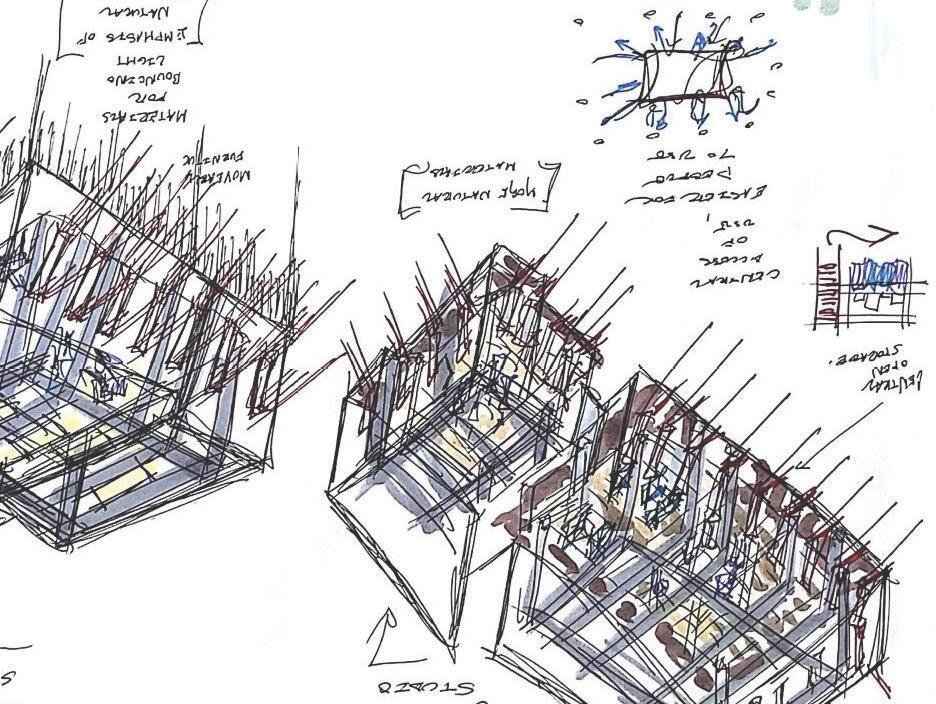 STUDIO
CENTRAL
OPEN
STORAGE.
CENTRAL
ACCESS
OF
USE,
EASIER FOR
TO USE
MORE NATURAL
MATERIALS
MOVEABLE
FURNITURE
MATERIALS
FOR
BOUNCING
LIGHT
EMPHASIS OF
NATURAL